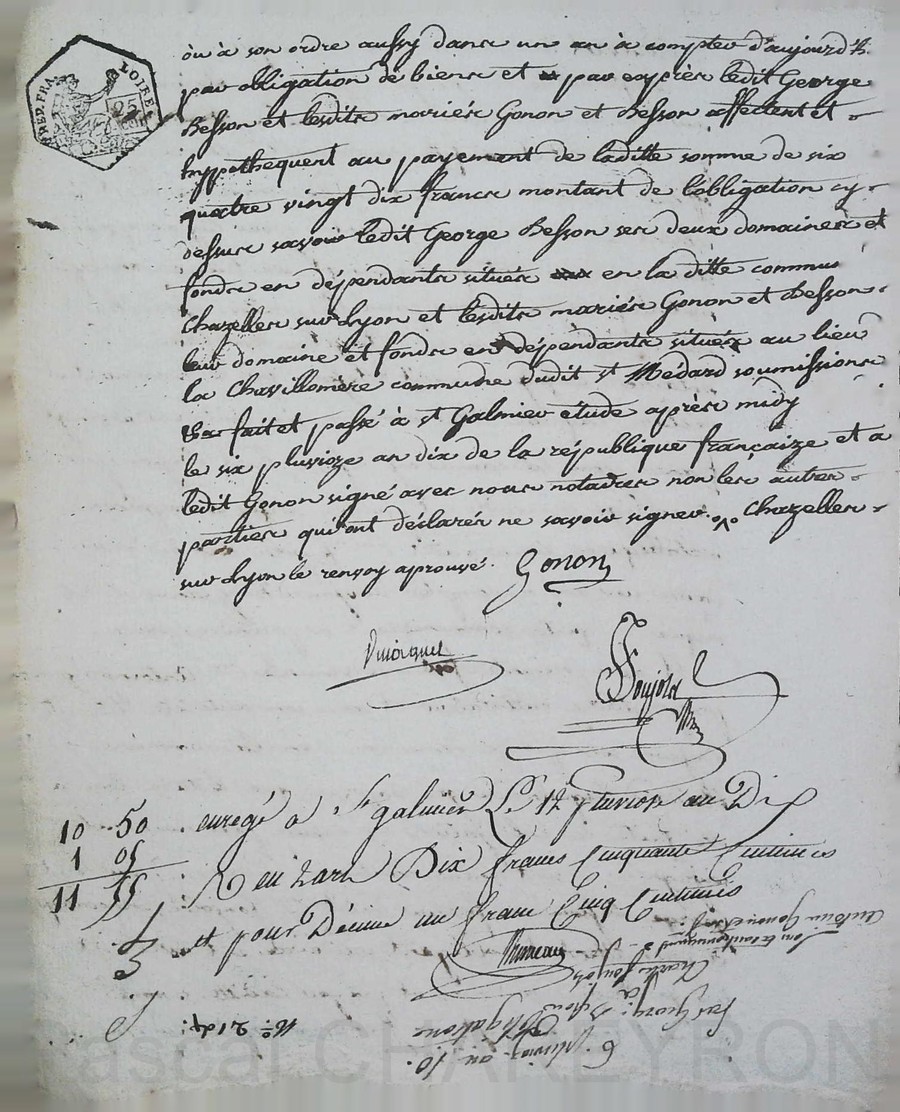 REP. FRA. LOIRE
25 cen
ou à son ordre aussy dans un an à compter d'aujourd'h.
par obligation de biens et par exprès ledit George
Besson et lesdits mariés Gonon et Besson affectent et
hyppothequent au payement de laditte somme de six
quatre vingt dix francs montant de l'obligation cy
dessus savoir ledit George Besson ses deux domaines et
fonds en dépendants situés en la ditte commune
Chazelles sur Lyon et lesdits mariés Gonon et Besson
leur domaine et fonds en dépendants situés au lieu
la Chavillonière commune dudit st Médard soumissions
fait et passé à st Galmier étude après midy
le six pluvioze an dix de la république françaize et a
ledit Gonon signé avec nous notaires non les autres
parties qui ont déclarés ne savoir signer. Chazelles
sur Lyon le renvoy aprouvé. Gonon
Goujols
10 50 enregé a st galmier Le 12 pluviose an Dix
1 05 Dix francs Cinquante Centimes
11 55 et pour Décime un franc Cinq Centimes
Antoine Gonon
obligation
6 pluvioz. an 10.